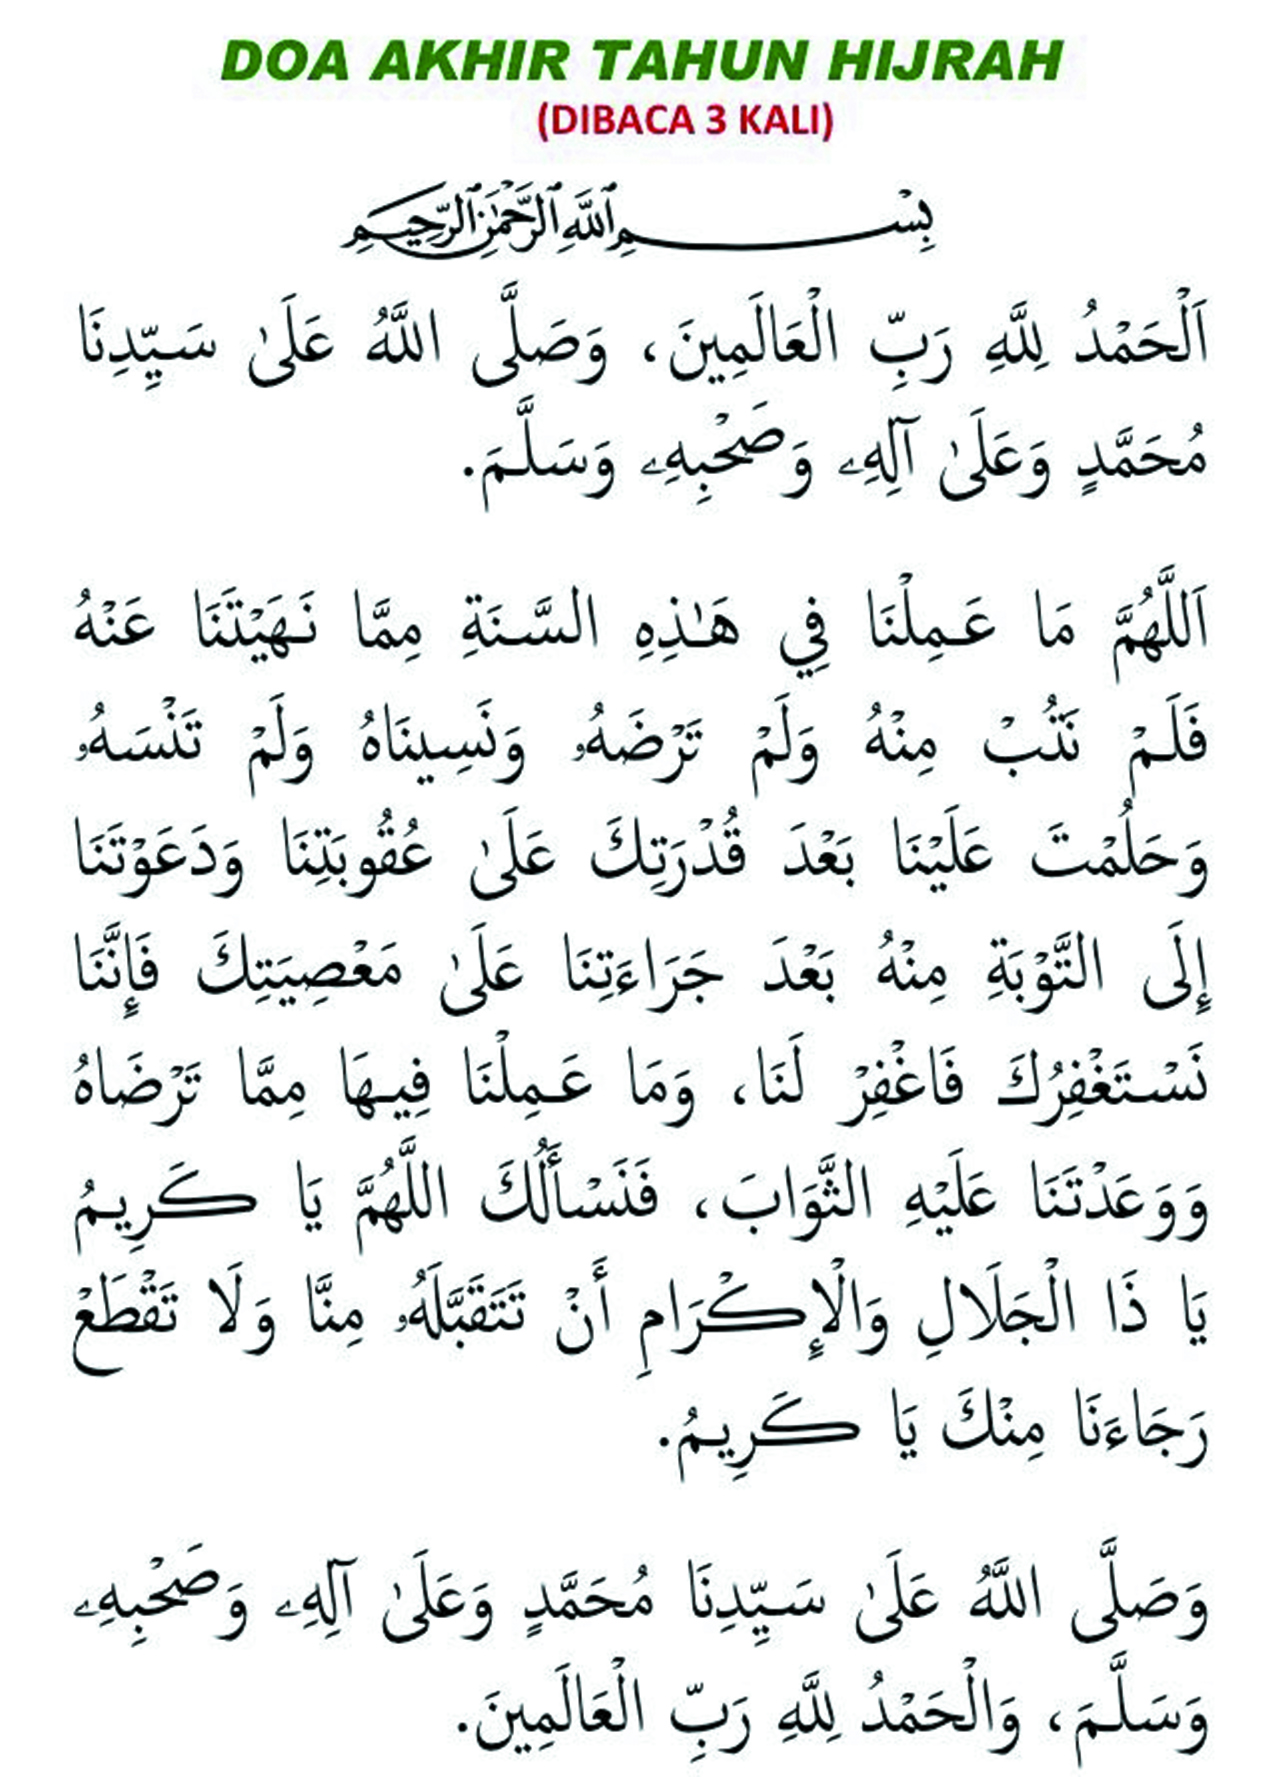 DOA AKHIR TAHUN HIJRAH
(DIBACA 3 KALI)
بِسْمِ اللَّهِ الرَّحْمٰنِ الرَّحِيمِ
اَلْحَمْدُ لِلَّهِ رَبِّ الْعَالَمِينَ، وَصَلَّى اللَّهُ عَلَىٰ سَيِّدِنَا
مُحَمَّدٍ وَعَلَىٰ آلِهِۦ وَصَحْبِهِۦ وَسَلَّمَ.
اَللَّهُمَّ مَا عَمِلْنَا فِي هَٰذِهِ السَّنَةِ مِمَّا نَهَيْتَنَا عَنْهُ
فَلَمْ نَتُبْ مِنْهُ وَلَمْ تَرْضَهُۥ وَنَسِينَاهُ وَلَمْ تَنْسَهُۥ
وَحَلُمْتَ عَلَيْنَا بَعْدَ قُدْرَتِكَ عَلَىٰ عُقُوبَتِنَا وَدَعَوْتَنَا
إِلَى التَّوْبَةِ مِنْهُ بَعْدَ جَرَاءَتِنَا عَلَىٰ مَعْصِيَتِكَ فَإِنَّنَا
نَسْتَغْفِرُكَ فَاغْفِرْ لَنَا، وَمَا عَمِلْنَا فِيهَا مِمَّا تَرْضَاهُ
وَوَعَدْتَنَا عَلَيْهِ الثَّوَابَ، فَنَسْأَلُكَ اللَّهُمَّ يَا كَرِيمُ
يَا ذَا الْجَلَالِ وَالْإِكْرَامِ أَنْ تَتَقَبَّلَهُۥ مِنَّا وَلَا تَقْطَعْ
رَجَاءَنَا مِنْكَ يَا كَرِيمُ.
وَصَلَّى اللَّهُ عَلَىٰ سَيِّدِنَا مُحَمَّدٍ وَعَلَىٰ آلِهِۦ وَصَحْبِهِۦ
وَسَلَّمَ، وَالْحَمْدُ لِلَّهِ رَبِّ الْعَالَمِينَ.